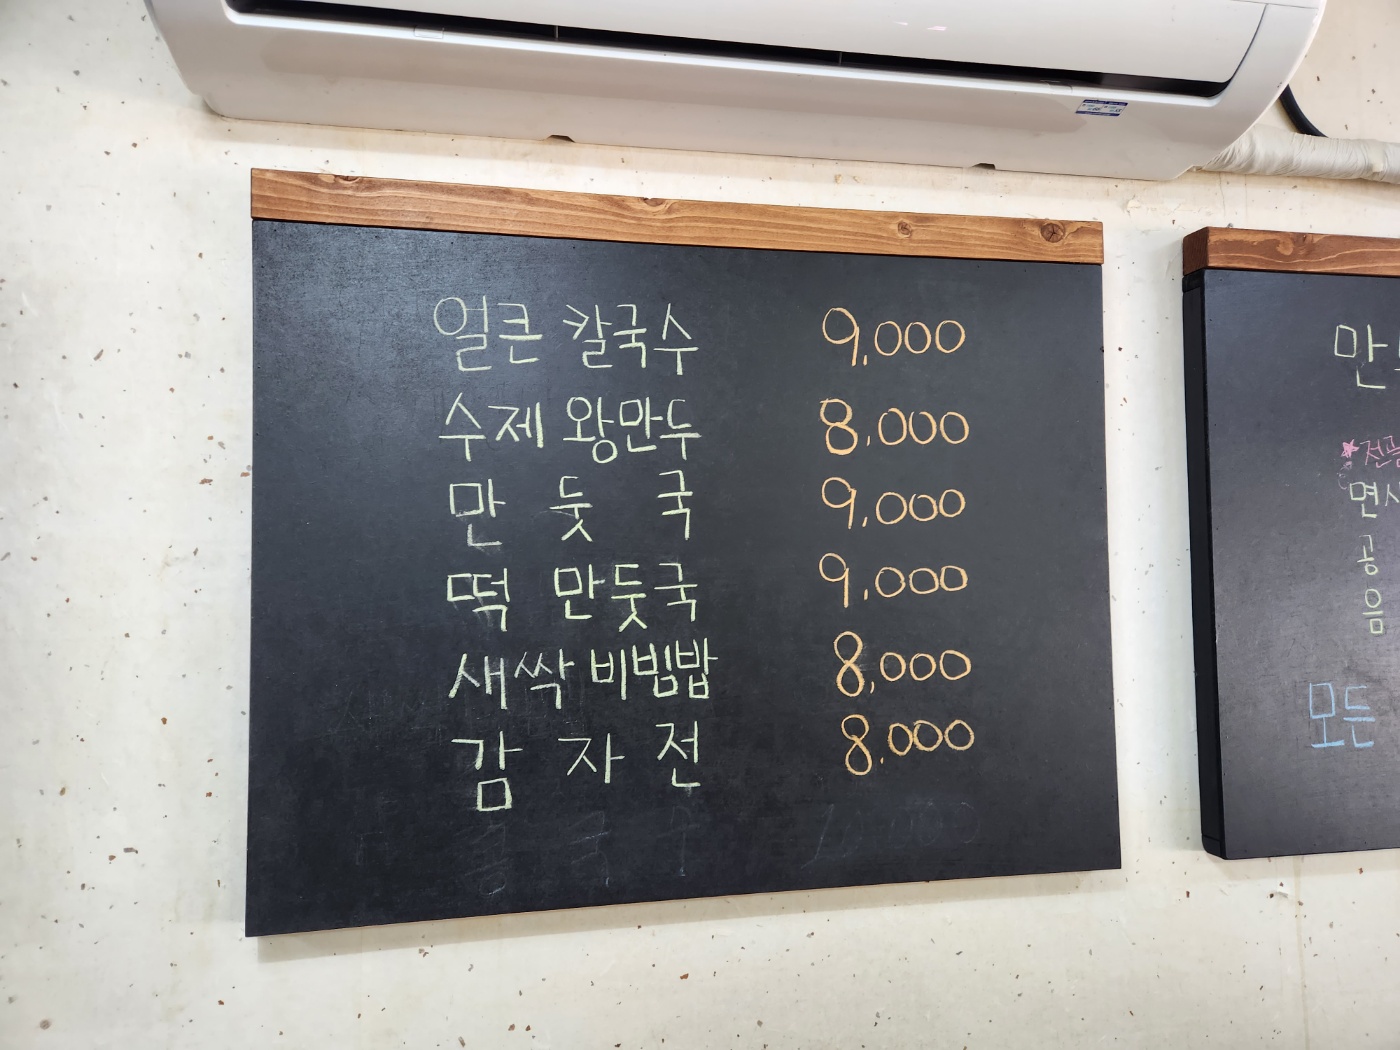 얼큰 칼국수 9,000
수제 왕만두 8,000
만 둣 국 9,000
떡 만둣국 9,000
새싹 비빔밥 8,000
감 자 전 8,000
만
공
음
모든